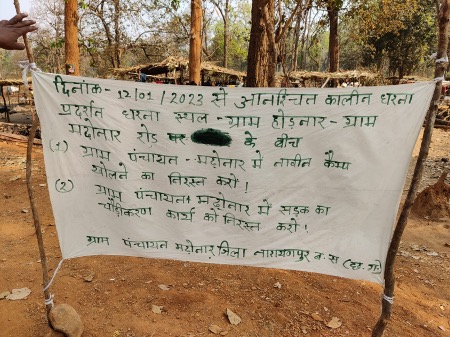 दिनाक- 12/01/2023 से आनश्चित कालीन धरना
प्रदर्शन धरना स्थल - ग्राम होडनार - ग्राम
मढोनार रोड पर के बीच
(1) ग्राम पंचायत - मढोनार में नावीन कैम्प
खोलने का निरस्त करो!
(2) ग्राम पंचायत मढोनार में सड़क का
चौड़ीकरण कार्य को निरस्त करो!
ग्राम पंचायत मढोनार, जिला नारायणपुर ब.स (छ.ग)